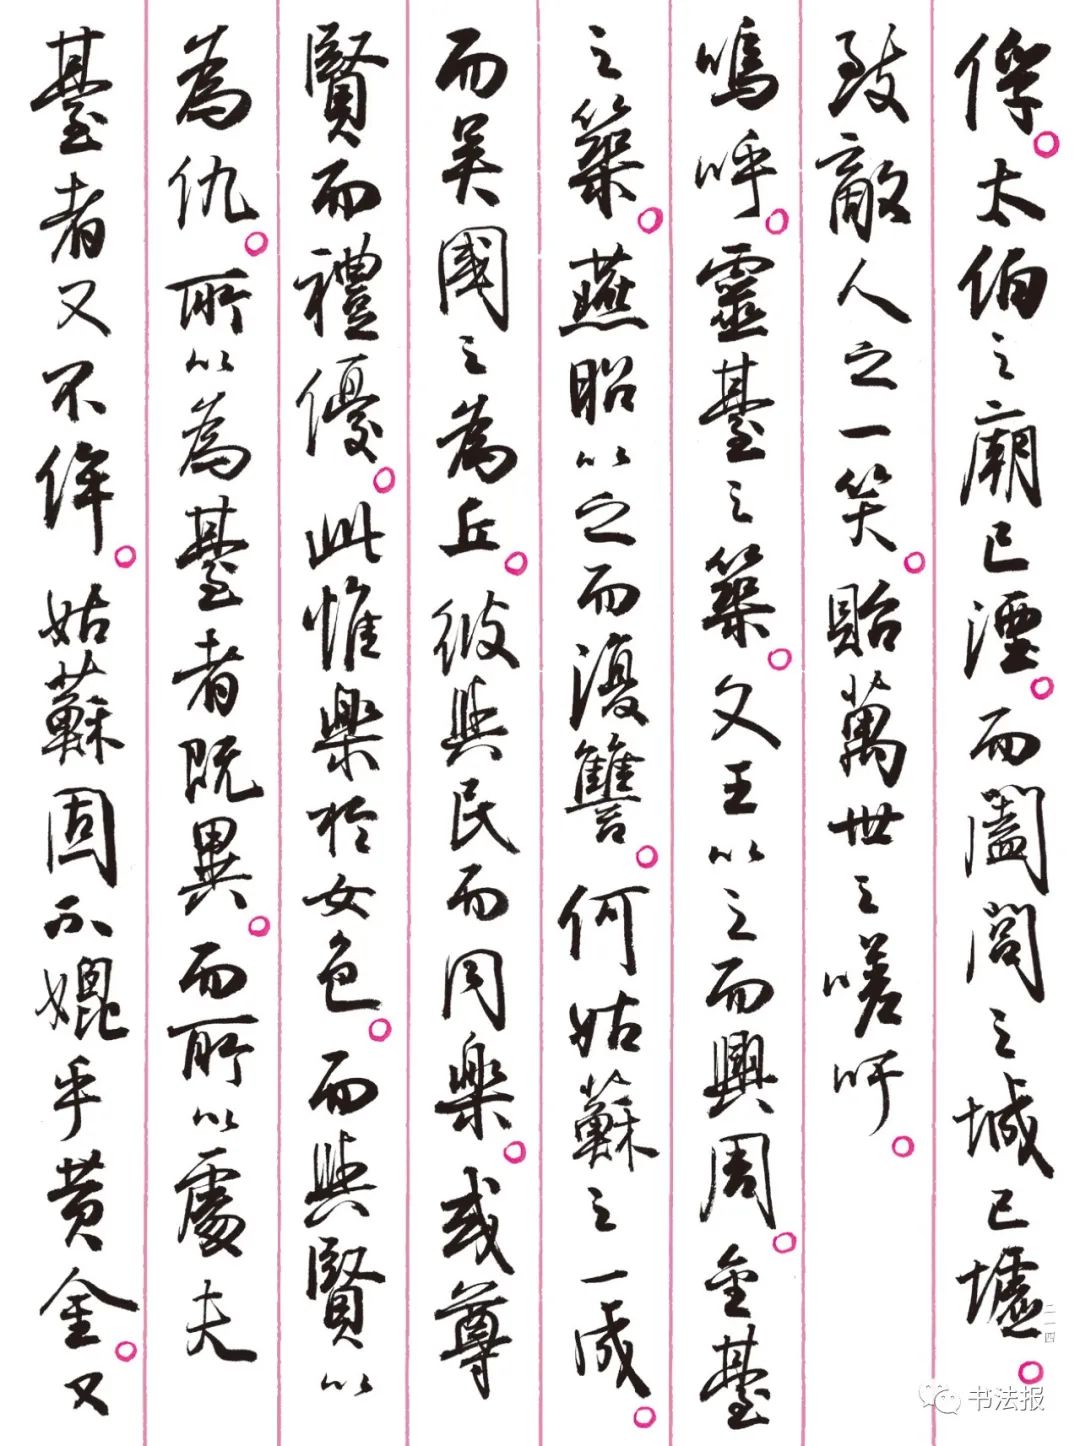 俘。太伯之廟已湮。而闔閭之城已墟。
致敵人之一笑。貽萬世之嗟吁。
嗚呼。靈臺之築。文王以之而興周。金臺
之築。燕昭以之而復讐。何姑蘇之一成。
而吴國之為丘。彼與民而同樂。或尊
賢而禮優。此惟樂於女色。而與賢以
為仇。所以為臺者既異。而所以處夫
臺者又不侔。姑蘇固不媿乎黄金。又
二一四
书法报